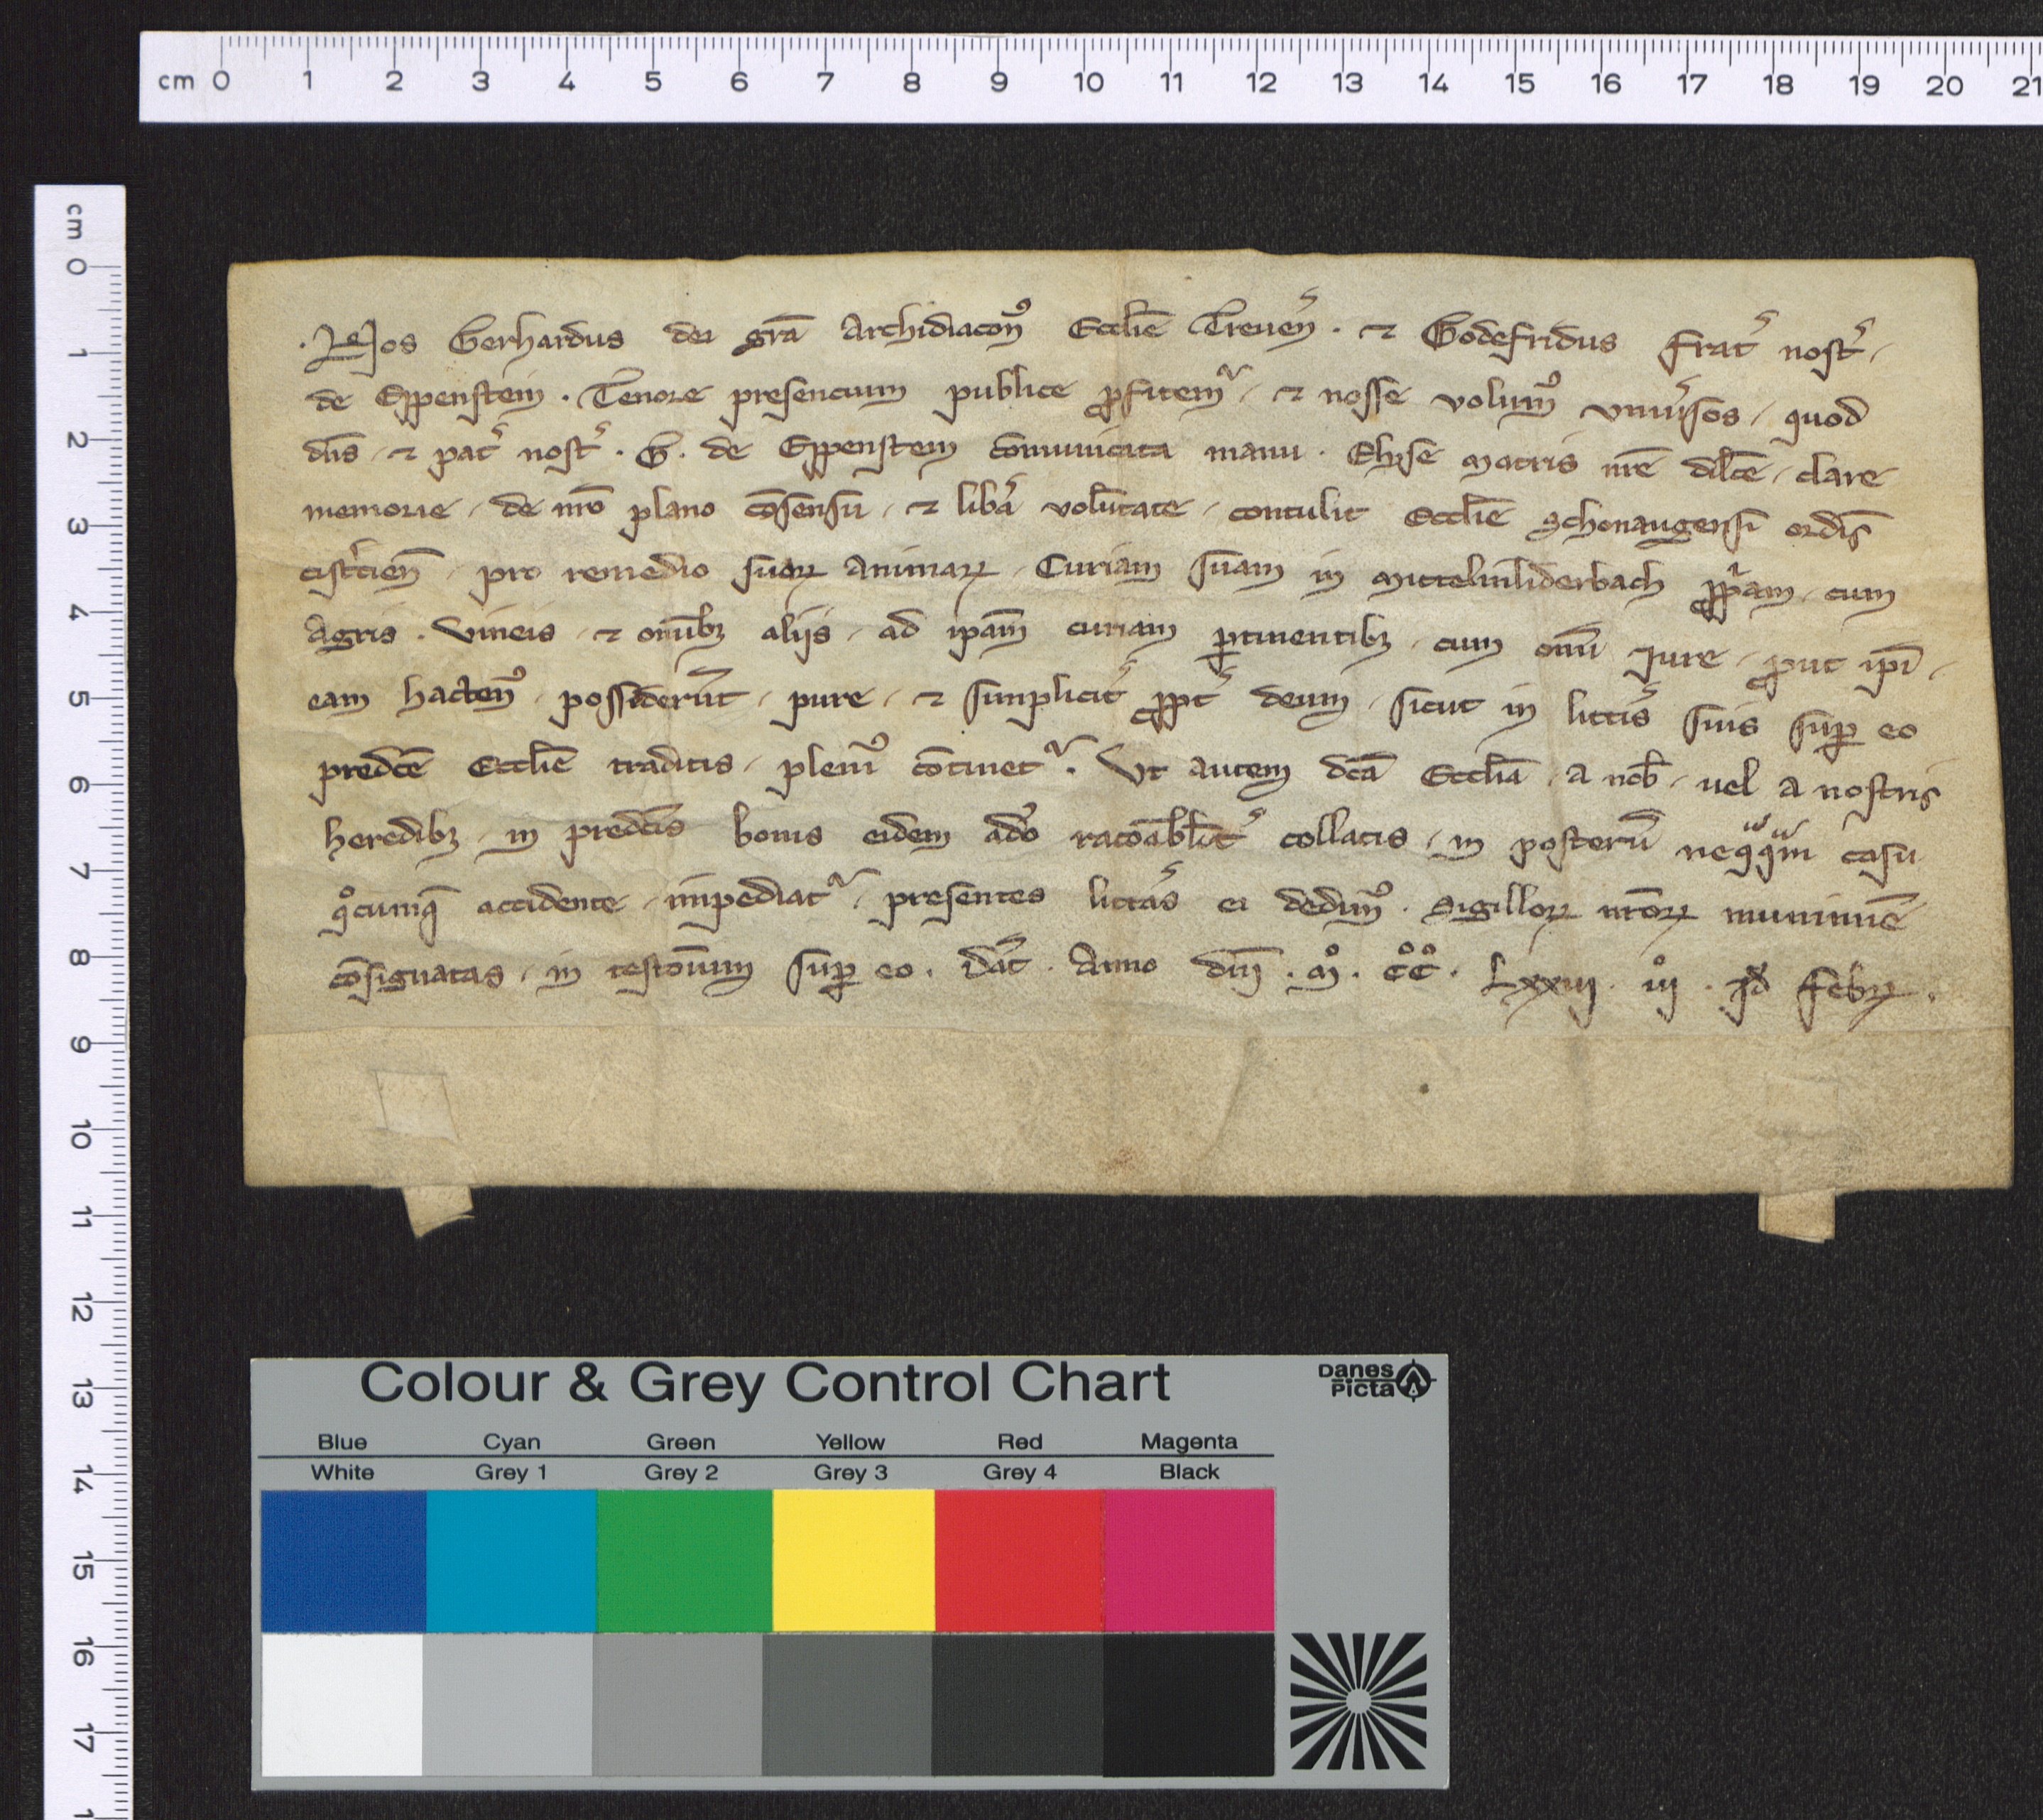 cm 0 1 2 3 4 5 6 7 8 9 10 11 12 13 14 15 16 17 18 19 20 21
cm 0 1 2 3 4 5 6 7 8 9 10 11 12 13 14 15 16 17
. Nos Gerhardus dei gr̄a Archidiaconꝰ Eccl̄ie Treuen̄ . ⁊ Godefridus frat͛ nost͛ .
de Eppenstein . Tenore presencium publice ꝓfitem᷑ . ⁊ nosse volumꝰ vniu͛sos . quod
dn̄s . ⁊ pat͛ nost͛ . G . de Eppenstein cōmunicata manu . Elyse matris nr̄e dil̄ce . clare
memorie . de nr̄o plano cōsensu . ⁊ lib͛a volūtate . contulit Eccl̄ie Schonaugensi ordīs
cist͛cien̄ . pro remedio suoꝝ animaꝝ . Curiam suam in Mittelinliderbach ꝓpͥam . cum
Agris . Vineis . ⁊ om̄ibꝫ alijs . ad ip̄am curiam ꝑtinentibꝫ . cum om̄i Jure . ꝓut ip̄i .
eam hactenꝰ . possiderūt . pure . ⁊ simplicit͛ ꝓpt͛ deum . sicut in litt͛is suis suꝑ eo
predc̄e Eccl̄ie traditis . pleniꝰ cōtinet᷑ . Vt autem dc̄a Eccl̄ia . a nob̄ . uel a nostris
heredibꝫ . in predc̄is bonis eidem adeo racōabl̄it͛ collatis . in posterū neqͣqͣm casu
qͦcumqꝫ accidente . impediat᷑ . presentes litt͛as ei dedimꝰ . Sigilloꝝ nr̄oꝝ munimīe
cōsignatas . in testōium suꝑ eo . Dat̄ . Anno dn̄i . Mͦ . CͦCͦ . Lxxiij . iijͦ . Id̄ febꝝ .
Colour & Grey Control Chart
Danes Picta
Blue Cyan Green Yellow Red Magenta
White Grey 1 Grey 2 Grey 3 Grey 4 Black